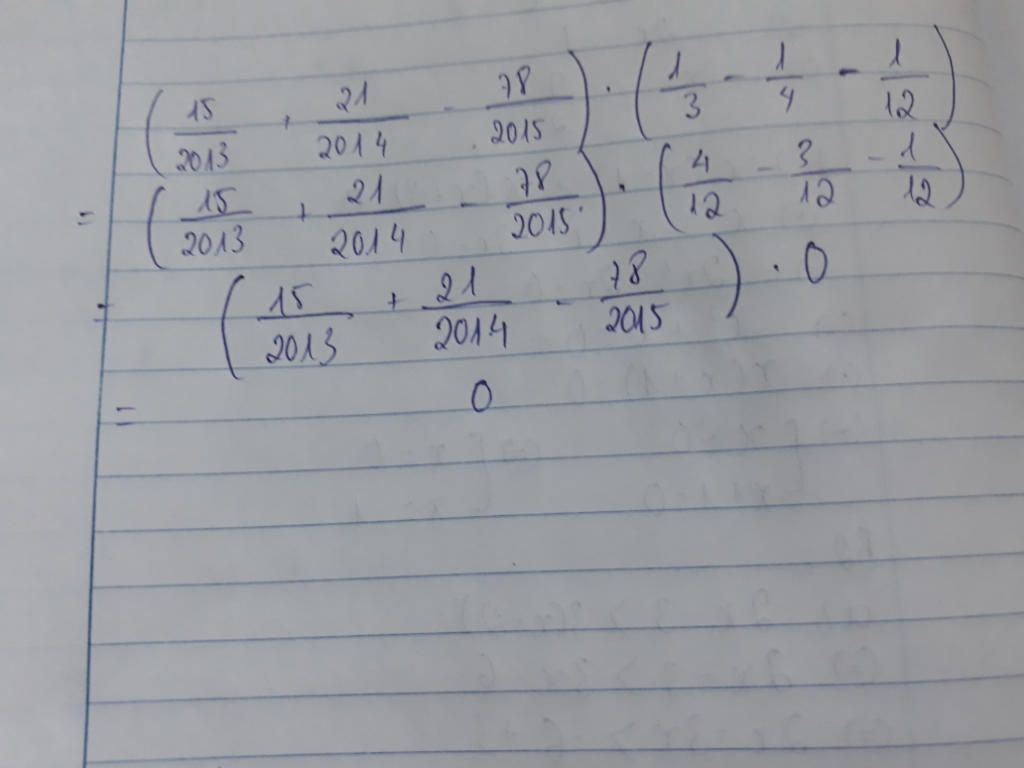 (15/2013 + 21/2014 - 78/2015) · (1/3 - 1/4 - 1/12)
= (15/2013 + 21/2014 - 78/2015) · (4/12 - 3/12 - 1/12)
= (15/2013 + 21/2014 - 78/2015) · 0
= 0